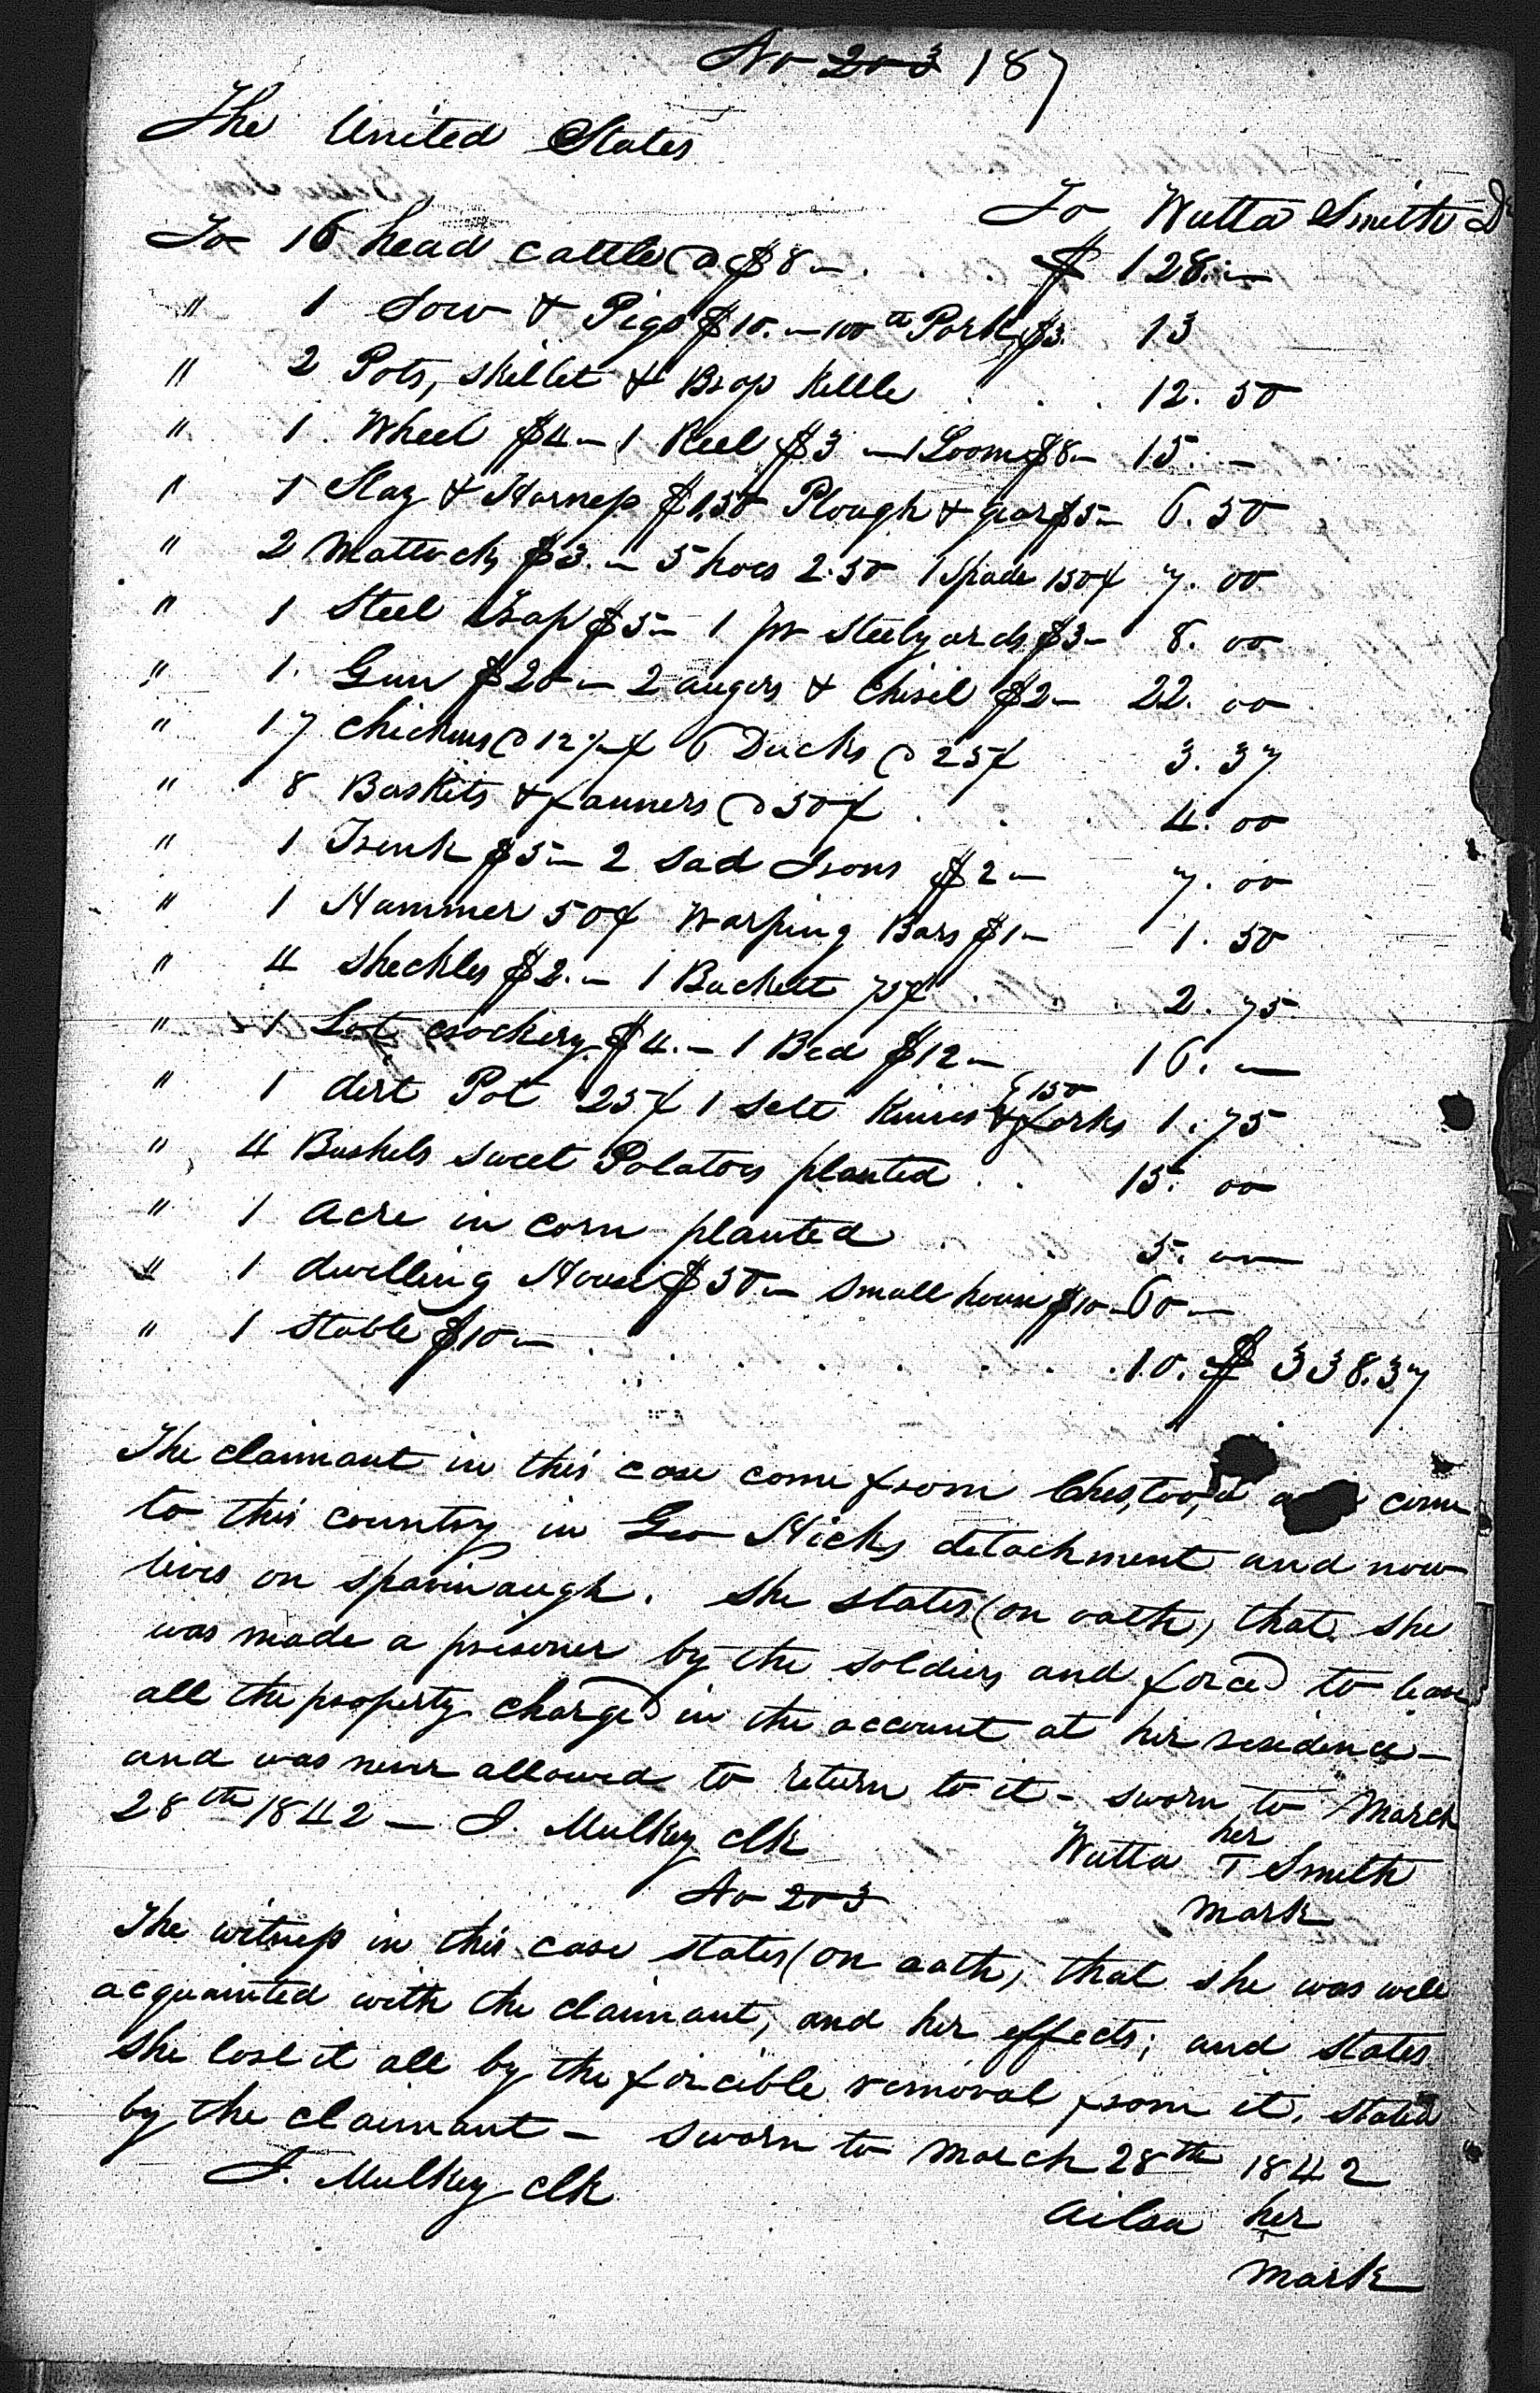 No 203 187
The United States
To Watta Smith Dr
To 16 head cattle @ $8 — . . . $ 128. —
" 1 Sow & Pigs $10. — 100 lb Pork $3. 13
" 2 Pots, skillet & Brass Kettle . . . 12. 50
" 1 Wheel $4 — 1 Reel $3 — 1 Loom $8 — 15. —
" 1 Slay & Harness $1,50 Plough & gear $5 — 6. 50
" 2 Mattocks $3. — 5 hoes 2.50 1 Spade 150¢ 7. 00
" 1 Steel Trap $5 — 1 pr Steelyards $3 — 8. 00
" 1. Gun $20 — 2 augers & Chisel $2 — 22. 00
" 17 chickens @ 12 1/2 ¢ 6 Ducks @ 25¢ 3. 37
" 8 Baskits & fanners @ 50¢ . . . 4. 00
" 1 Trunk $5 — 2 Sad Irons $2 — 7. 00
" 1 Hammer 50¢ Warping Bars $1 — 1. 50
" 4 Sheckles $2. — 1 Buckett 75¢ . . 2. 75
" 1 Lot crockery $4. — 1 Bed $12 — 16. —
" 1 dirt Pot 25¢ 1 Sett Knives & forks 150 1. 75
" 4 Bushels sweet Potatoes planted . . 15. 00
" 1 acre in corn planted . . 5. 00
" 1 dwelling House $50 — small house $10 — 60 —
" 1 Stable $10 — . . . . . . . . 10. $ 338.37
The claimant in this case come from and come
to this country in Geo Hicks detachment and now
lives on Spavinaugh. She states (on oath) that she
was made a prisoner by the soldiers and forced to leave
all the property charged in the account at her residence —
and was never allowed to return to it — sworn to March
28th 1842 — J. Mulkey clk
her
Watta T Smith
mark
No 203
The witness in this case states (on oath) that she was well
acquainted with the claimant, and her effects; and states
she lost it all by the forcible removal from it, stated
by the claimant — sworn to March 28th 1842
J. Mulkey clk
Ailsa her
mark